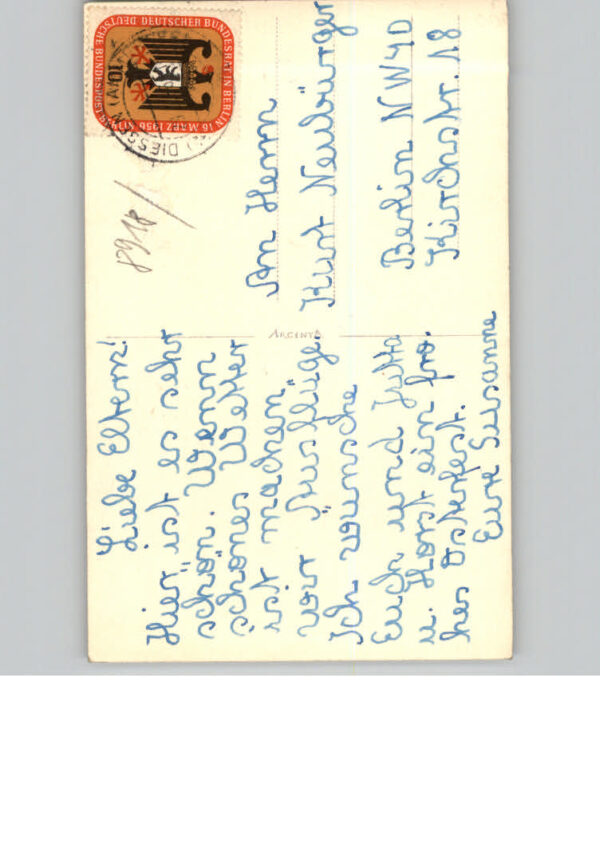 Liebe Eltern!
Hier ist es sehr
schön. Wenn
schönes Wetter
ist machen
wir Ausflüge.
Ich wünsche
Euch und Jutta
u. Horst ein fro-
hes Osterfest.
Eure Susanne
ARGENTA
An Herrn
Kurt Neubürger
Berlin NW40
Kirchstr. 18
8918
DEUTSCHE BUNDESPOST BERLIN 16. MÄRZ 1956
DEUTSCHER BUNDESRAT IN BERLIN
DIESSEN